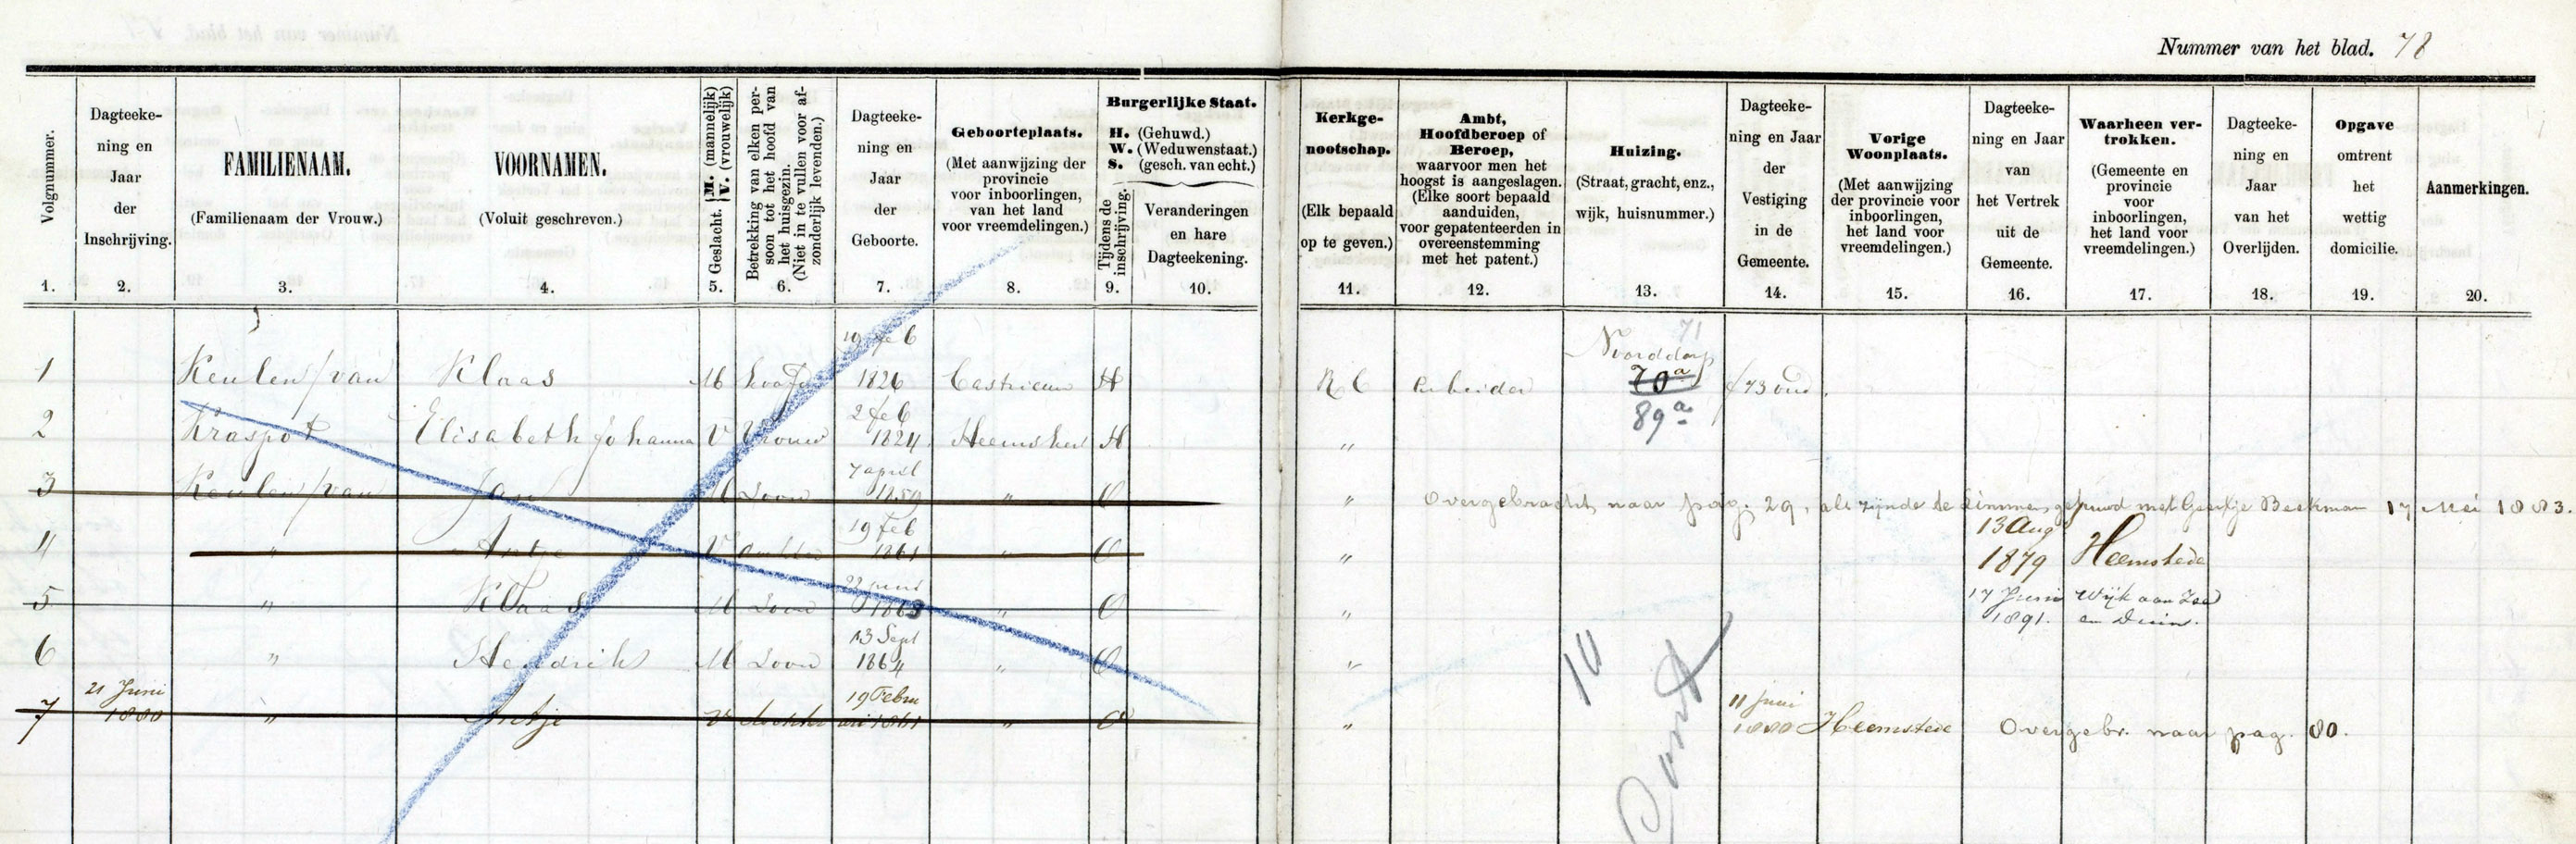 Nummer van het blad. 78
Volgnummer.
1.
Dagteeke-
ning en
Jaar
der
Inschrijving.
2.
FAMILIENAAM.
(Familienaam der Vrouw.)
3.
VOORNAMEN.
(Voluit geschreven.)
4.
Geslacht. M. (mannelijk) V. (vrouwelijk)
5.
Betrekking van elken per-
soon tot het hoofd van
het huisgezin.
(Niet in te vullen voor af-
zonderlijk levenden.)
6.
Dagteeke-
ning en
Jaar
der
Geboorte.
7.
Geboorteplaats.
(Met aanwijzing der
provincie
voor inboorlingen,
van het land
voor vreemdelingen.)
8.
Burgerlijke Staat.
H. (Gehuwd.)
W. (Weduwenstaat.)
S. (gesch. van echt.)
Tijdens de
inschrijving.
9.
Veranderingen
en hare
Dagteekening.
10.
Kerkge-
nootschap.
(Elk bepaald
op te geven.)
11.
Ambt,
Hoofdberoep of
Beroep,
waarvoor men het
hoogst is aangeslagen.
(Elke soort bepaald
aanduiden,
voor gepatenteerden in
overeenstemming
met het patent.)
12.
Huizing.
(Straat, gracht, enz.,
wijk, huisnummer.)
13.
Dagteeke-
ning en Jaar
der
Vestiging
in de
Gemeente.
14.
Vorige
Woonplaats.
(Met aanwijzing
der provincie voor
inboorlingen,
het land voor
vreemdelingen.)
15.
Dagteeke-
ning en Jaar
van
het Vertrek
uit de
Gemeente.
16.
Waarheen ver-
trokken.
(Gemeente en
provincie
voor
inboorlingen,
het land voor
vreemdelingen.)
17.
Dagteeke-
ning en
Jaar
van het
Overlijden.
18.
Opgave
omtrent
het
wettig
domicilie.
19.
Aanmerkingen.
20.
19 feb 71
Noorddorp
1 Keulen /van Klaas M hoofd 1826 Castricum H R C arbeider 70a
2 feb 89a
2 Kraspot Elisabeth Johanna V Vrouw 1824 H "
7 april
3 Keulen /van Jan M Zoon 1859 " O " Overgebracht naar pag. 29, als zijnde te gehuwd met Geertje Beekman 17 Mei 1883.
19 feb 13 Aug
4 " Antje V dochter 1861 " O " 1879 Heemstede
22 juni 17 Juni Wijk aan Zee
5 " Klaas M Zoon 1863 " O " 1891. en Duin.
13 Sept
6 " Hendrik M Zoon 1864 " O "
10
21 Juni 19 Febru 11 juni
7 1880 " Antje V dochter ari 1861 " O " 1880 Heemstede Overgebr. naar pag. 80.